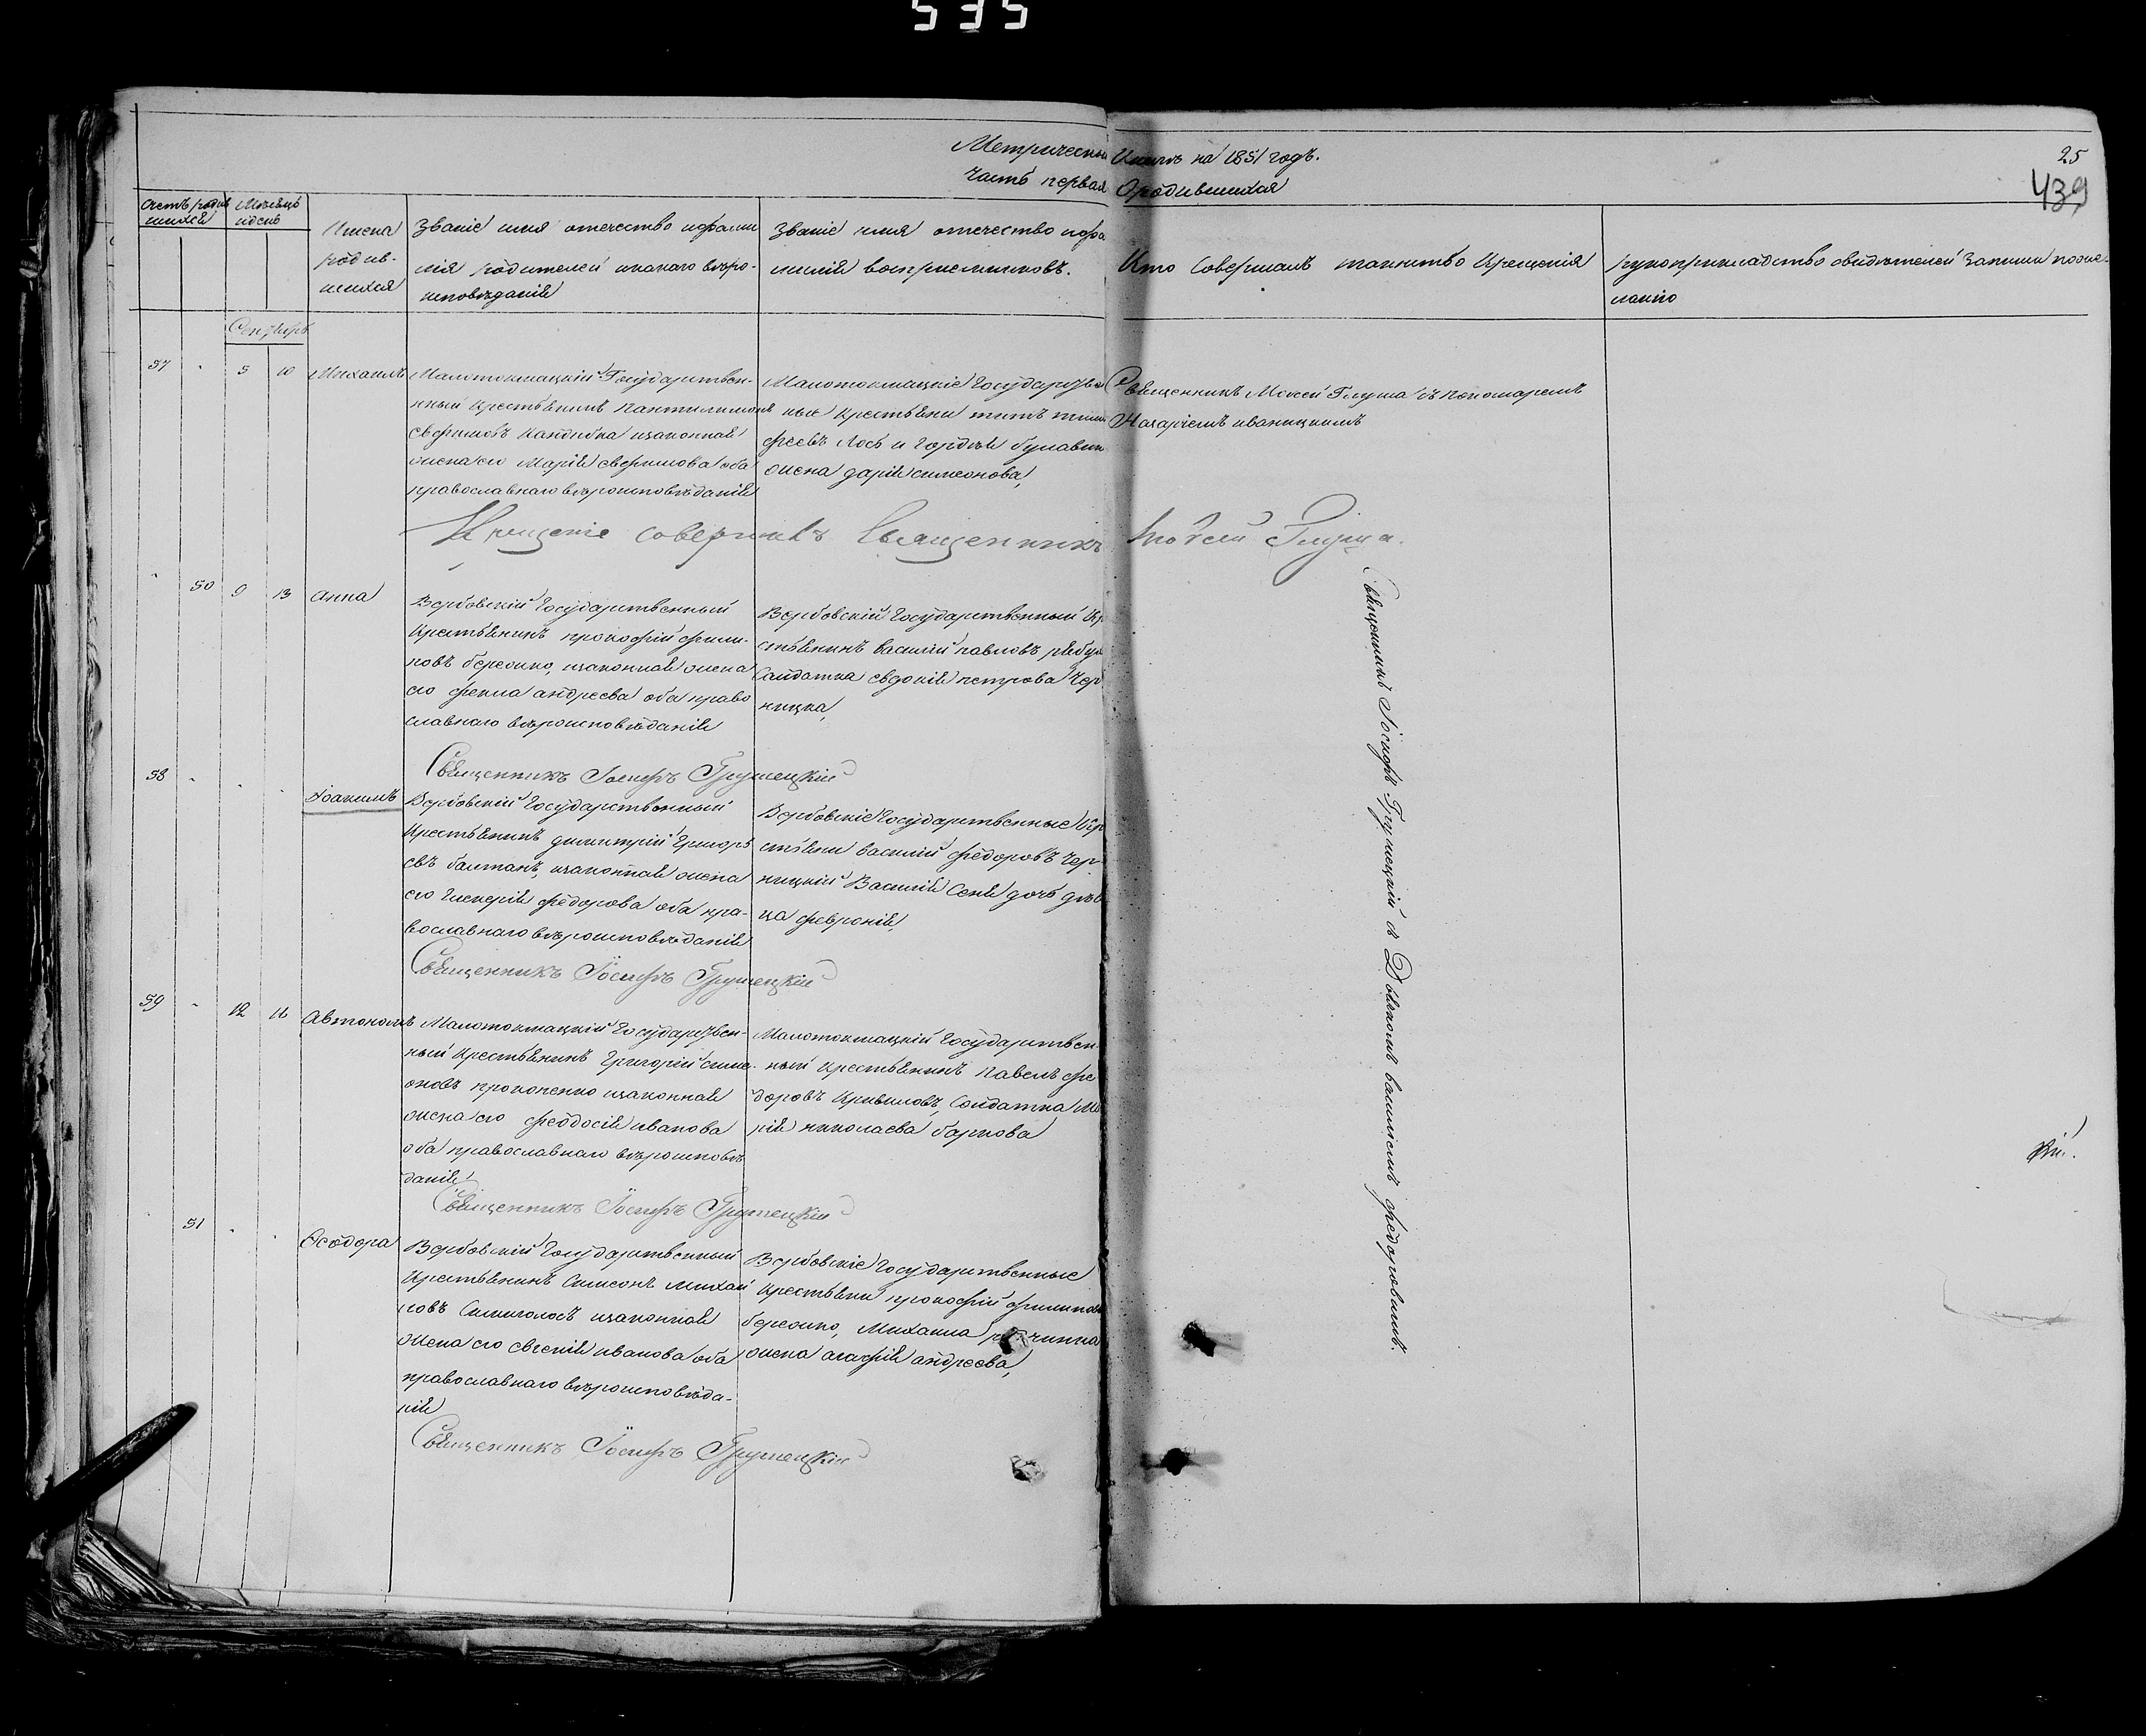 535
Метрической Книги на 1851 годъ. 25
Часть первая О родившихся 439
Счетъ родив
шихся
Месяцъ
и день
Имена
родив-
шихся
Званіе имя отчество и фами
лія родителей и какого вѣро-
исповѣданія
Званіе имя отчество и фа
милія воспріемниковъ.
Кто Совершалъ таинство Крещенія
рукоприкладство свидѣтелей записи по же-
ланію
57 5 10 Михаилъ
Малотокмацкій Государствен-
нный крестьянинъ Пантилимонъ
законная
жена его Марія оба
православнаго вѣроисповѣданія
Малотокмацкіе Государствен
ные крестьяне титъ
Лось и гордѣя
жена дарія симеонова,
Священникъ Моѵсей Глуша съ пономаремъ
Назаріемъ иваницкимъ
Крещеніе совершилъ Священникъ Моѵсей Глуша.
50 9 13 Анна
Вербовскій Государственный
Крестьянинъ прокофій фили-
повъ бережко, законная жена
его фекла андреева оба право
славнаго вѣроисповѣданія
Вербовскій Государственный кр
стьянинъ василій павловъ
Салдатка евдокія петрова Чер
ницка,
Священникъ Іосифъ Грушецкій
58 Іоакимъ
Вербовскій Государственный
Крестьянинъ димитрій Григорь
евъ балтакъ, законная жена
его гликерія федорова оба пра-
вославнаго вѣроисповѣданія
Вербовскіе Государственные кр
стьяне василій федоровъ Чер-
ницкій Василія Сеня дочь дѣв
ца февронія,
Священникъ Іосифъ Грушецкій
59 12 16 Автономъ
Малотокмацкій Государствен-
ный крестьянинъ Григорій симе-
оновъ прокопенко законная
жена его феодосія иванова
оба православнаго вѣроисповѣ
данія
Малотокмацкій Государствен
ный крестьянинъ павелъ фе
доровъ Кривиловъ, Солдатка Ма
рія николаева баркова
Священникъ Іосифъ Грушецкій
51 Ѳеодора
Вербовскій Государственный
Крестьянинъ Симеонъ михаи
ловъ законная
жена его евгенія иванова оба
православнаго вѣроисповѣда-
нія
Вербовскіе Государственные
Крестьяне прокофій филипов
бережко, Михаила
жена агафія андреева,
Священникъ Іосифъ Грушецкій
Священникъ Іосифъ Грушецкій съ Дьякомъ василіемъ федоровымъ.